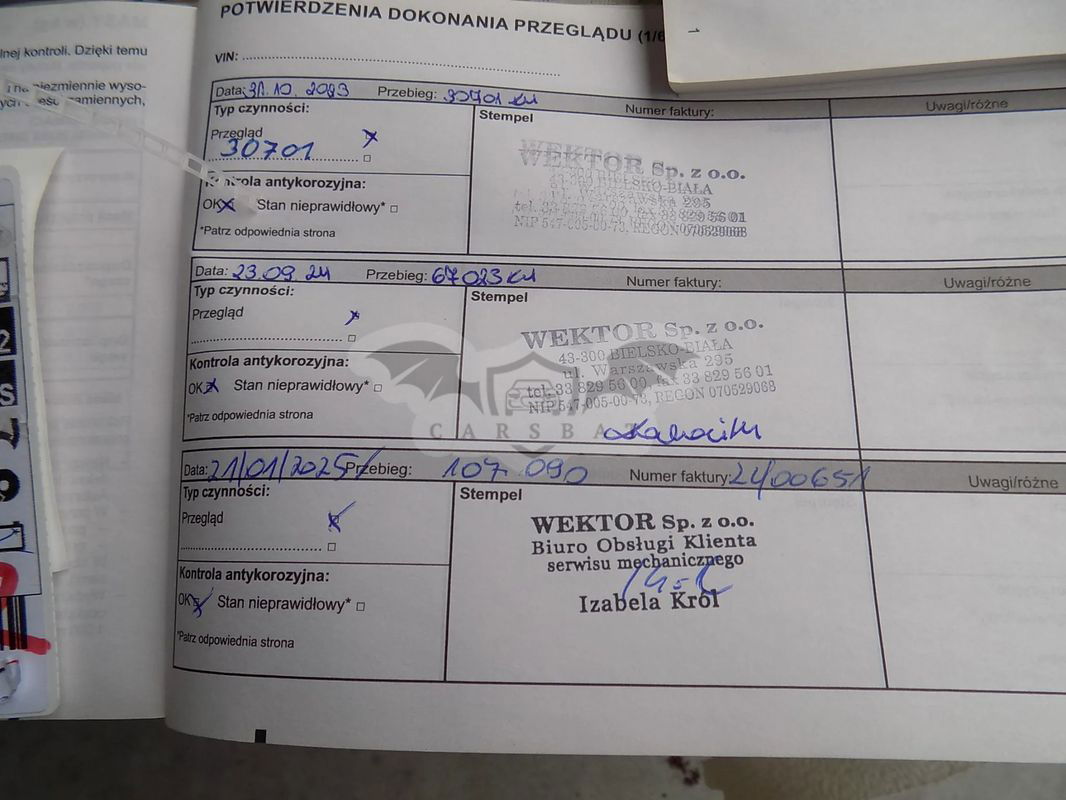 lnej kontroli. Dzięki temu
niezmiennie wyso-
zamiennych,
POTWIERDZENIA DOKONANIA PRZEGLĄDU (1/6
VIN:
Data: 31.10.2023 Przebieg: 30701 KM Numer faktury: Uwagi/różne
Typ czynności: Stempel
Przegląd x
30701
Kontrola antykorozyjna:
OK x Stan nieprawidłowy*
*Patrz odpowiednia strona
WEKTOR Sp. z o.o.
43-300 BIELSKO-BIAŁA
ul. Warszawska 295
tel. 33 829 56 00, fax 33 829 56 01
NIP 547-005-00-73, REGON 070529068
Data: 23.09.24 Przebieg: 67023 KM Numer faktury: Uwagi/różne
Typ czynności: Stempel
Przegląd x
Kontrola antykorozyjna:
OK x Stan nieprawidłowy*
*Patrz odpowiednia strona
WEKTOR Sp. z o.o.
43-300 BIELSKO-BIAŁA
ul. Warszawska 295
tel. 33 829 56 00, fax 33 829 56 01
NIP 547-005-00-73, REGON 070529068
CARSBAT
Data: 21/01/2025 Przebieg: 107 090 Numer faktury: 24/00651 Uwagi/różne
Typ czynności: Stempel
Przegląd x
Kontrola antykorozyjna:
OK x Stan nieprawidłowy*
*Patrz odpowiednia strona
WEKTOR Sp. z o.o.
Biuro Obsługi Klienta
serwisu mechanicznego
Izabela Król